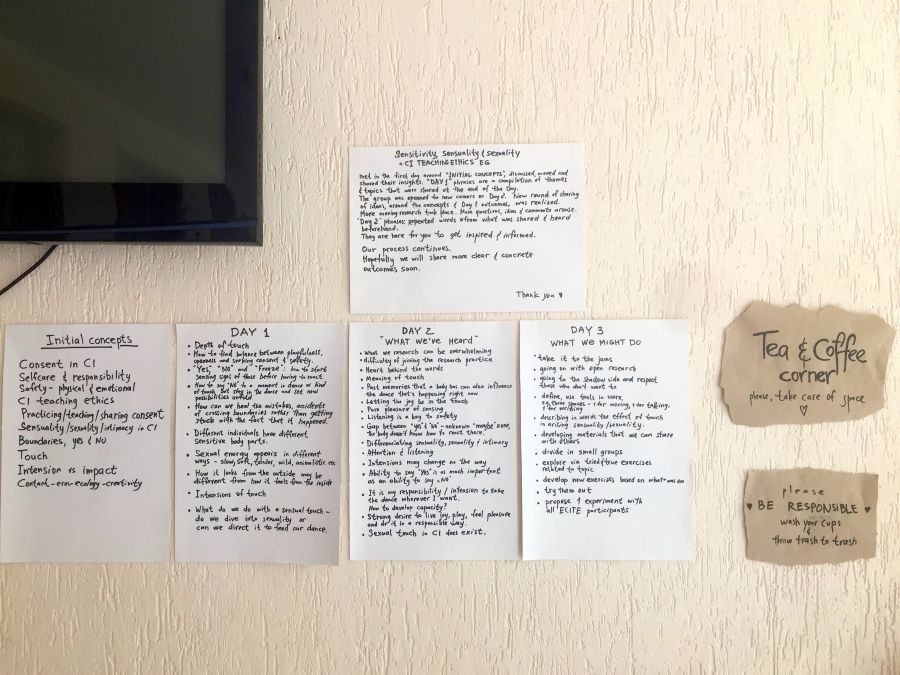 Sensitivity, sensuality & sexuality
"CI TEACHING ETHICS" EG
Met in the first day around "INITIAL CONCEPTS", discussed, moved and
shared their insights. "DAY 1" phrases are a compilation of themes
& topics that were shared at the end of the day.
The group was opened to new comers on Day 2. New round of sharing
of ideas, around the concepts & Day 1 outcomes, was realized.
More moving research took place. More questions, ideas & comments arouse.
"Day 2" phrases: repeated words from what was shared & heard
beforehand.
They are here for you to get inspired & informed.
Our process continues.
Hopefully we will share more clear & concrete
outcomes soon.
Thank you ♥
Initial concepts
Consent in CI
Selfcare & responsibility
Safety - physical & emotional
CI teaching ethics
Practicing/teaching/sharing consent
Sensuality/sexuality/intimacy in CI
Boundaries, yes & NO
Touch
Intension vs impact
Contact - eros - ecology - creativity
DAY 1
• Depths of touch
• How to find balance between playfulness,
openness and seeking consent & safety.
• "Yes," "NO" and "Freeze": how to start
sensing signs of these before having to react.
• How to say "NO" to a moment in dance or kind
of touch but stay in the dance and let new
possibilities unfold
• How can we heal the mistakes, accidents
of crossing boundaries rather than getting
stuck with the fact that it happened.
• Different individuals have different
sensitive body parts.
• Sexual energy appears in different
ways - slow, soft, tender, wild, animalistic etc
• How it looks from the outside may be
different from how it feels from the inside
• Intensions of touch
• What do we do with a sensual touch -
do we dive into sexuality or
can we direct it to feed our dance.
DAY 2
"WHAT WE'VE HEARD"
• What we research can be overwhelming
• difficulty of joining the research practice
• Heart behind the words
• Meaning of touch
• Past memories that a body has can also influence
the dance that's happening right now
• Letting the joy be in the touch
• Pure pleasure of sensing
• Listening is a key to safety
• Gap between "yes" & "NO" - unknown "maybe" zone,
the body doesn't know how to react there.
• Differenciating sensuality, sexuality & intimacy
• Attention & listening
• Intensions may change on the way
• Ability to say "yes" is as much important
as an ability to say "NO"
• It is my responsibility / intension to take
the dance wherever I want.
How to develop capacity?
• Strong desire to live joy, play, feel pleasure
and do it in a responsible way.
• Sexual touch in CI does exist.
DAY 3
WHAT WE MIGHT DO
• take it to the jams
• going on with open research
• going to the shadow side and respect
those who don't want to
• define, use tools in score,
ex. three spaces - 1 for moving, 1 for talking,
1 for writing
• describing in words the effect of touch
in arising sensuality/sexuality.
• developing materials that we can share
with others
• divide in small groups
• explore via tried/true exercises
related to topic
• develop new exercises based on what was
• try them out
• propose 1 experiment with
all ECITE participants
Tea & Coffee
corner
please, take care of space
♡
please
♥ BE RESPONSIBLE ♥
wash your cups
&
throw trash to trash